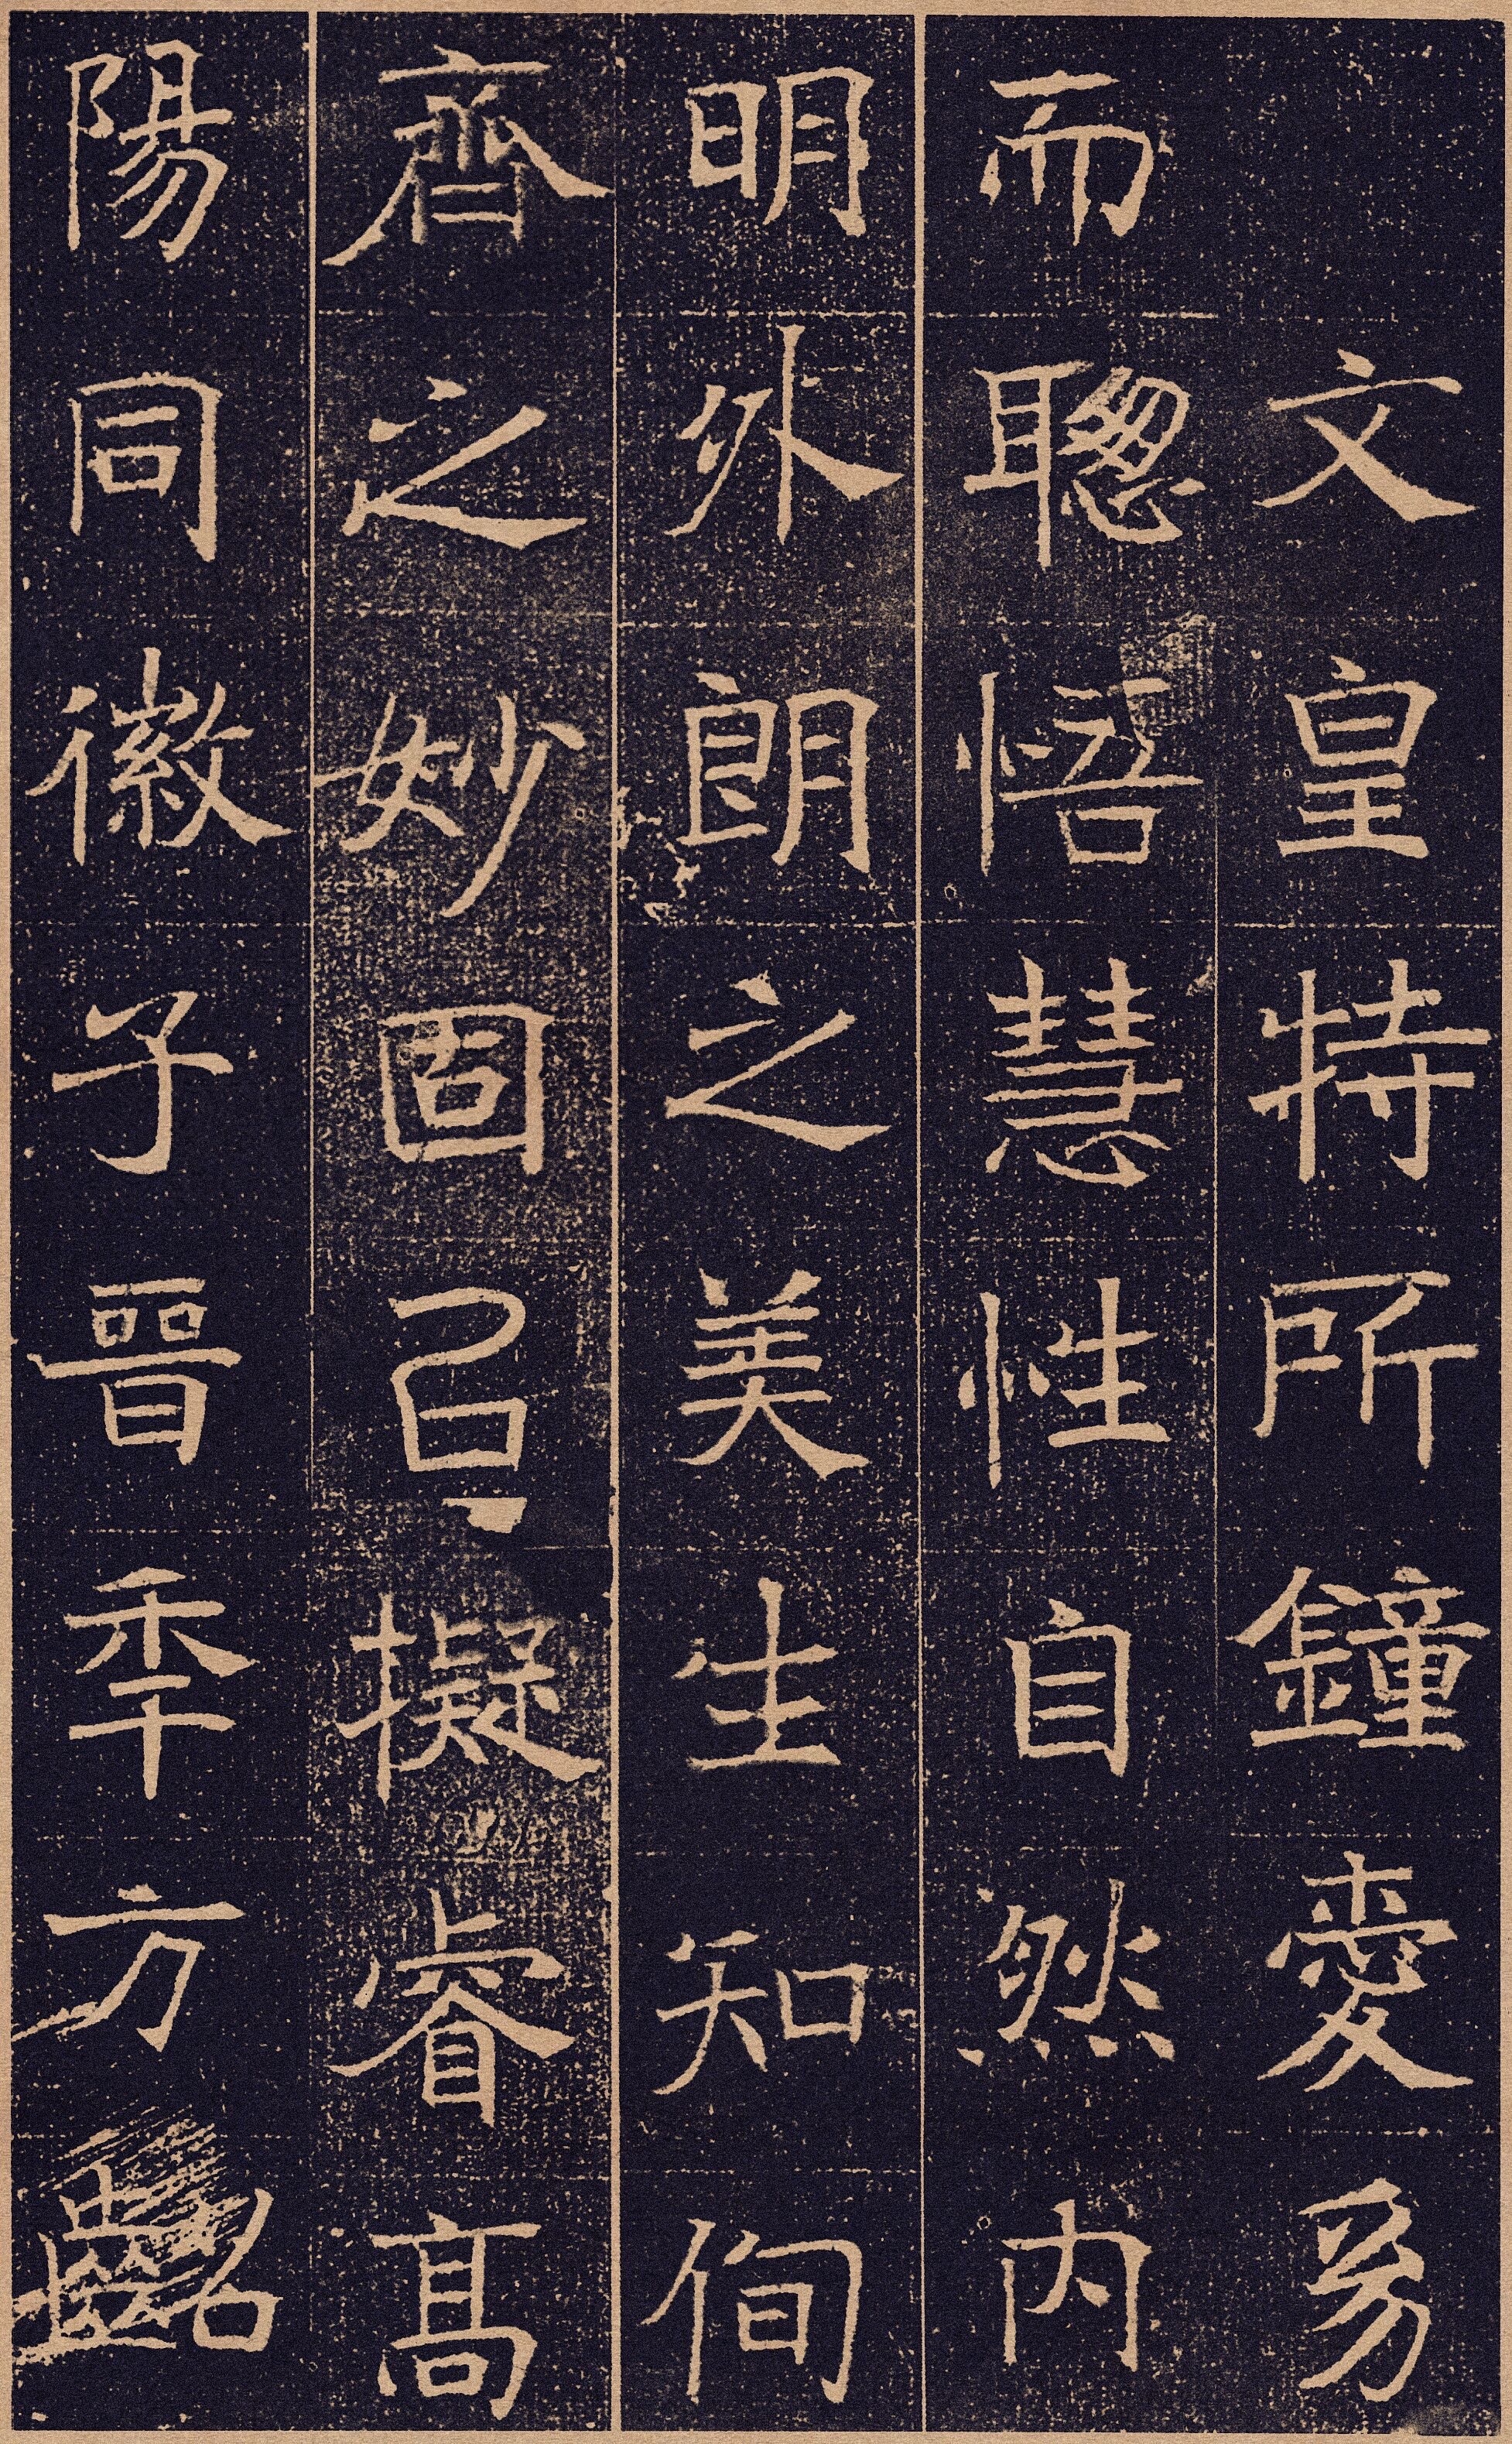 文皇特所鐘愛爲
而聰悟慧性自然内
明外朗之美生知徇
齊之妙固已擬睿高
陽同徽子晉季方齠